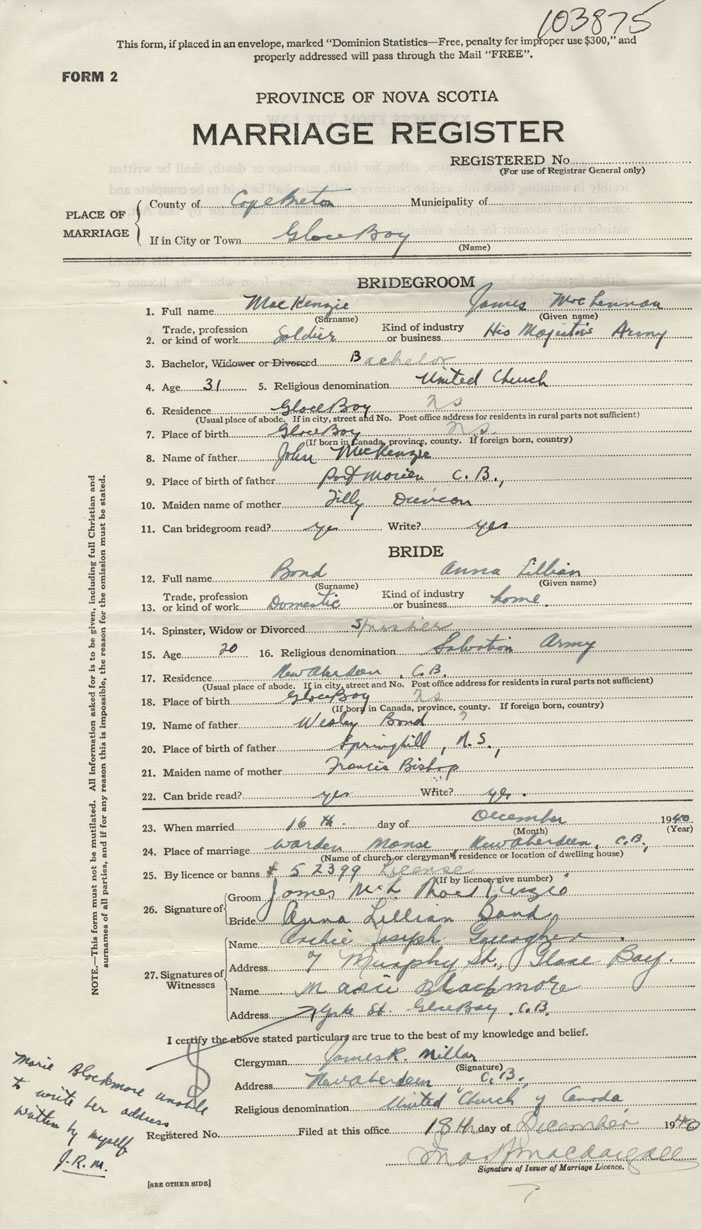 103875
This form, if placed in an envelope, marked “Dominion Statistics—Free, penalty for improper use $300,” and
properly addressed will pass through the Mail “FREE”.
FORM 2
PROVINCE OF NOVA SCOTIA
MARRIAGE REGISTER
REGISTERED No.
(For use of Registrar General only)
PLACE OF MARRIAGE
County of Cape Breton Municipality of
If in City or Town Glace Bay
(Name)
BRIDEGROOM
1. Full name MacKenzie James MacLennan
(Surname) (Given name)
2. Trade, profession or kind of work Soldier Kind of industry or business His Majestie's Army
3. Bachelor, Widower or Divorced Bachelor
4. Age 31 5. Religious denomination United Church
6. Residence Glace Bay N.S.
(Usual place of abode. If in city, street and No. Post office address for residents in rural parts not sufficient)
7. Place of birth Glace Bay N.S.
(If born in Canada, province, county. If foreign born, country)
8. Name of father John MacKenzie
9. Place of birth of father Port Morien C.B.,
10. Maiden name of mother Tilly Duncan
11. Can bridegroom read? yes Write? yes
BRIDE
12. Full name Bond Anna Lillian
(Surname) (Given name)
13. Trade, profession or kind of work Domestic Kind of industry or business home.
14. Spinster, Widow or Divorced Spinster
15. Age 20 16. Religious denomination Salvation Army
17. Residence New Aberdeen, C.B.
(Usual place of abode. If in city, street and No. Post office address for residents in rural parts not sufficient)
18. Place of birth Glace Bay N.S.
(If born in Canada, province, county. If foreign born, country)
19. Name of father Wesley Bond ?
20. Place of birth of father Springhill, N.S.,
21. Maiden name of mother Francis Bishop
22. Can bride read? yes Write? yes.
23. When married 16th day of December 1940
(Month) (Year)
24. Place of marriage Warden Manse, New Aberdeen, C.B,
(Name of church or clergyman's residence or location of dwelling house)
25. By licence or banns # 52399 License
(If by licence, give number)
26. Signature of
Groom James McL MacKenzie
Bride Anna Lillian Bond
27. Signatures of Witnesses
Name Archie Joseph Gallagher.
Address 7 Murphy St., Glace Bay.
Name Marie Blackmore
Address York St. Glace Bay, C.B.
I certify the above stated particulars are true to the best of my knowledge and belief.
Clergyman James R. Millar
(Signature)
Address New Aberdeen C.B.,
Religious denomination United Church of Canada,
Registered No. Filed at this office 18th day of December 1940
Signature of Issuer of Marriage Licence.
[SEE OTHER SIDE]
Marie Blackmore unable
to write her address
written by myself
J.R.M.
NOTE.—This form must not be mutilated. All information asked for is to be given, including full Christian and
surnames of all parties, and if for any reason this is impossible, the reason for the omission must be stated.